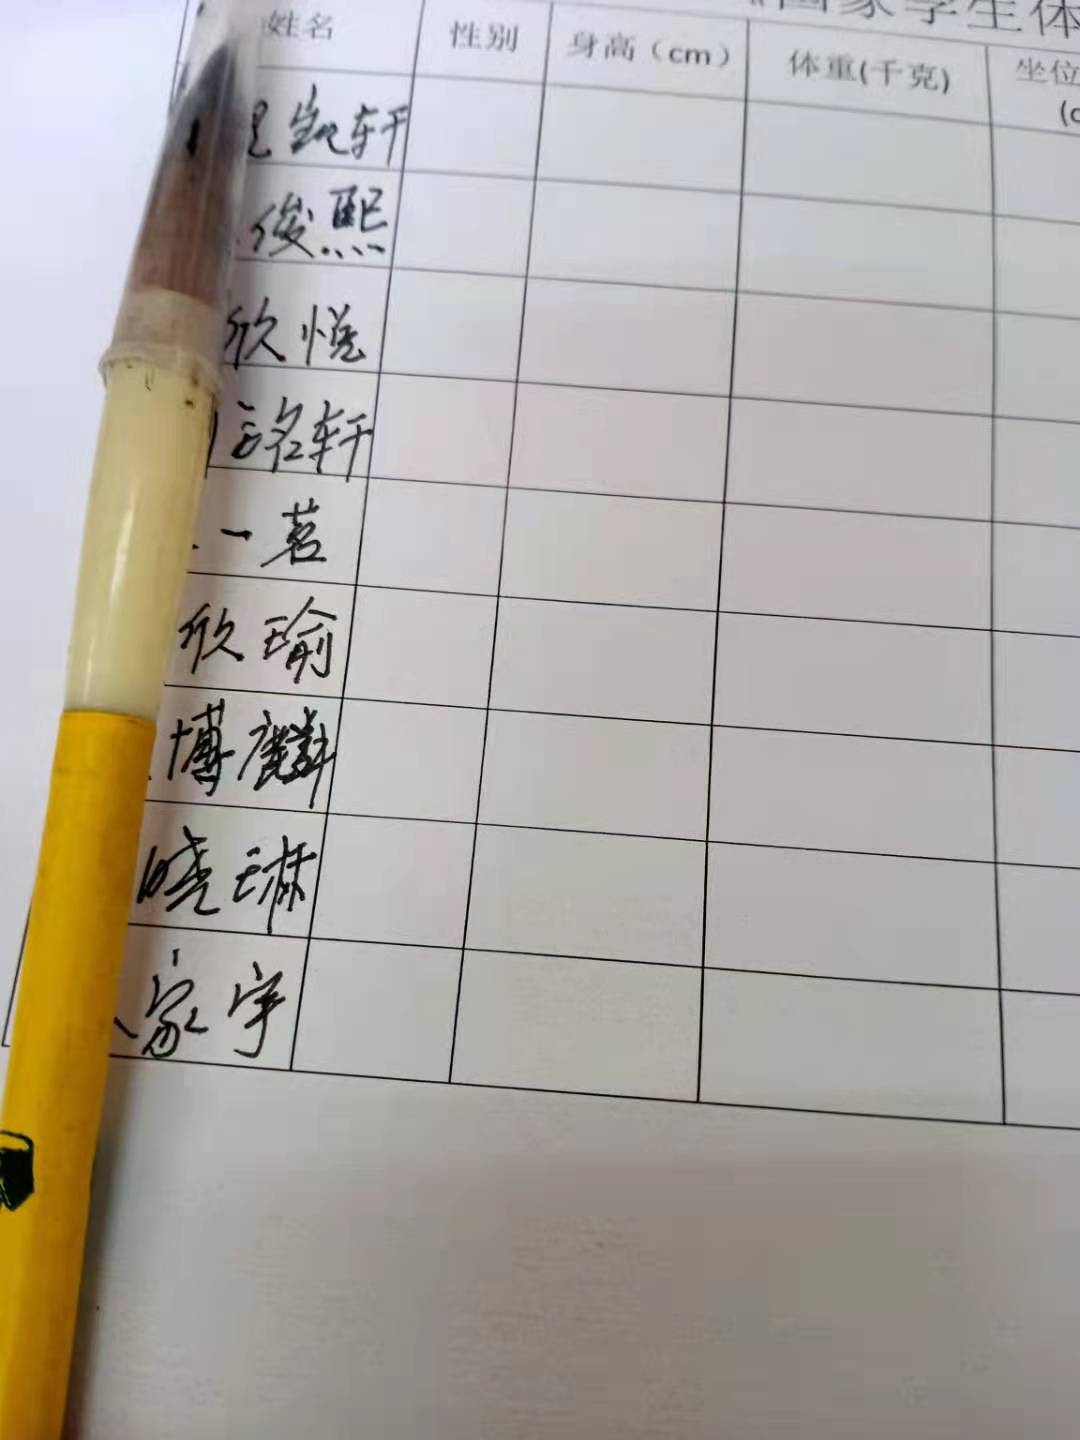 国家学生体
姓名 性别 身高（cm） 体重(千克) 坐位
轩
俊熙
欣悦
铭轩
一茗
欣瑜
博麟
晓琳
家宇